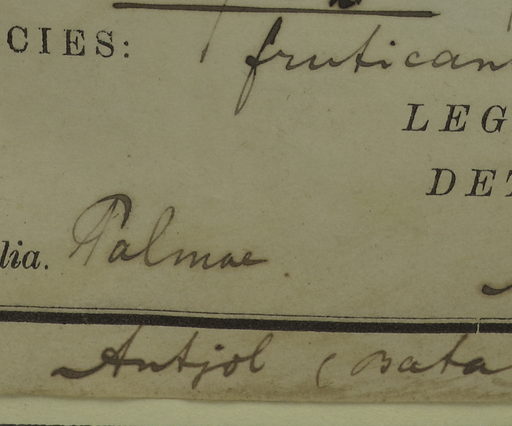 CIES: frutican
LEG
DET
lia. Palmae.
Antjol (Bata